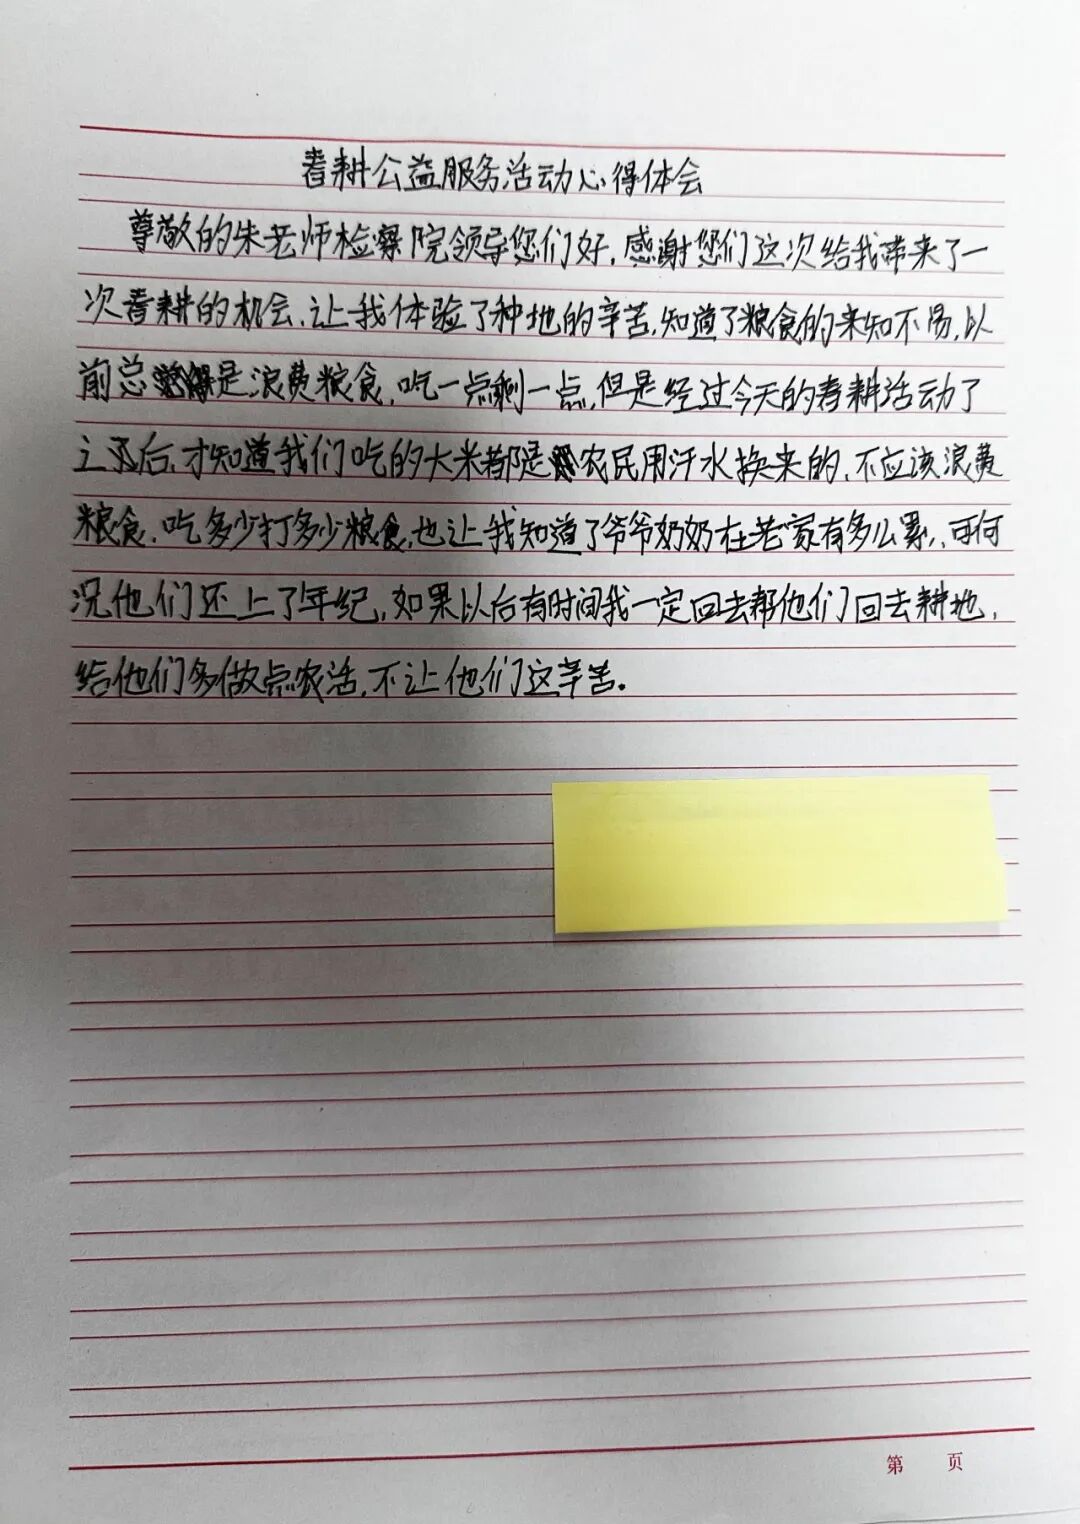 春耕公益服务活动心得体会
尊敬的朱老师检察院领导您们好,感谢您们这次给我带来了一
次春耕的机会、让我体验了种地的辛苦,知道了粮食的来知不易,以
前总是浪费粮食,吃一点剩一点,但是经过今天的春耕活动了
之后,才知道我们吃的大米都是农民用汗水换来的、不应该浪费
粮食、吃多少打多少粮食,也让我知道了爷爷奶奶在老家有多么累,可何
况他们还上了年纪,如果以后有时间我一定回去帮他们回去耕地,
给他们多做点农活,不让他们这辛苦。
第 页